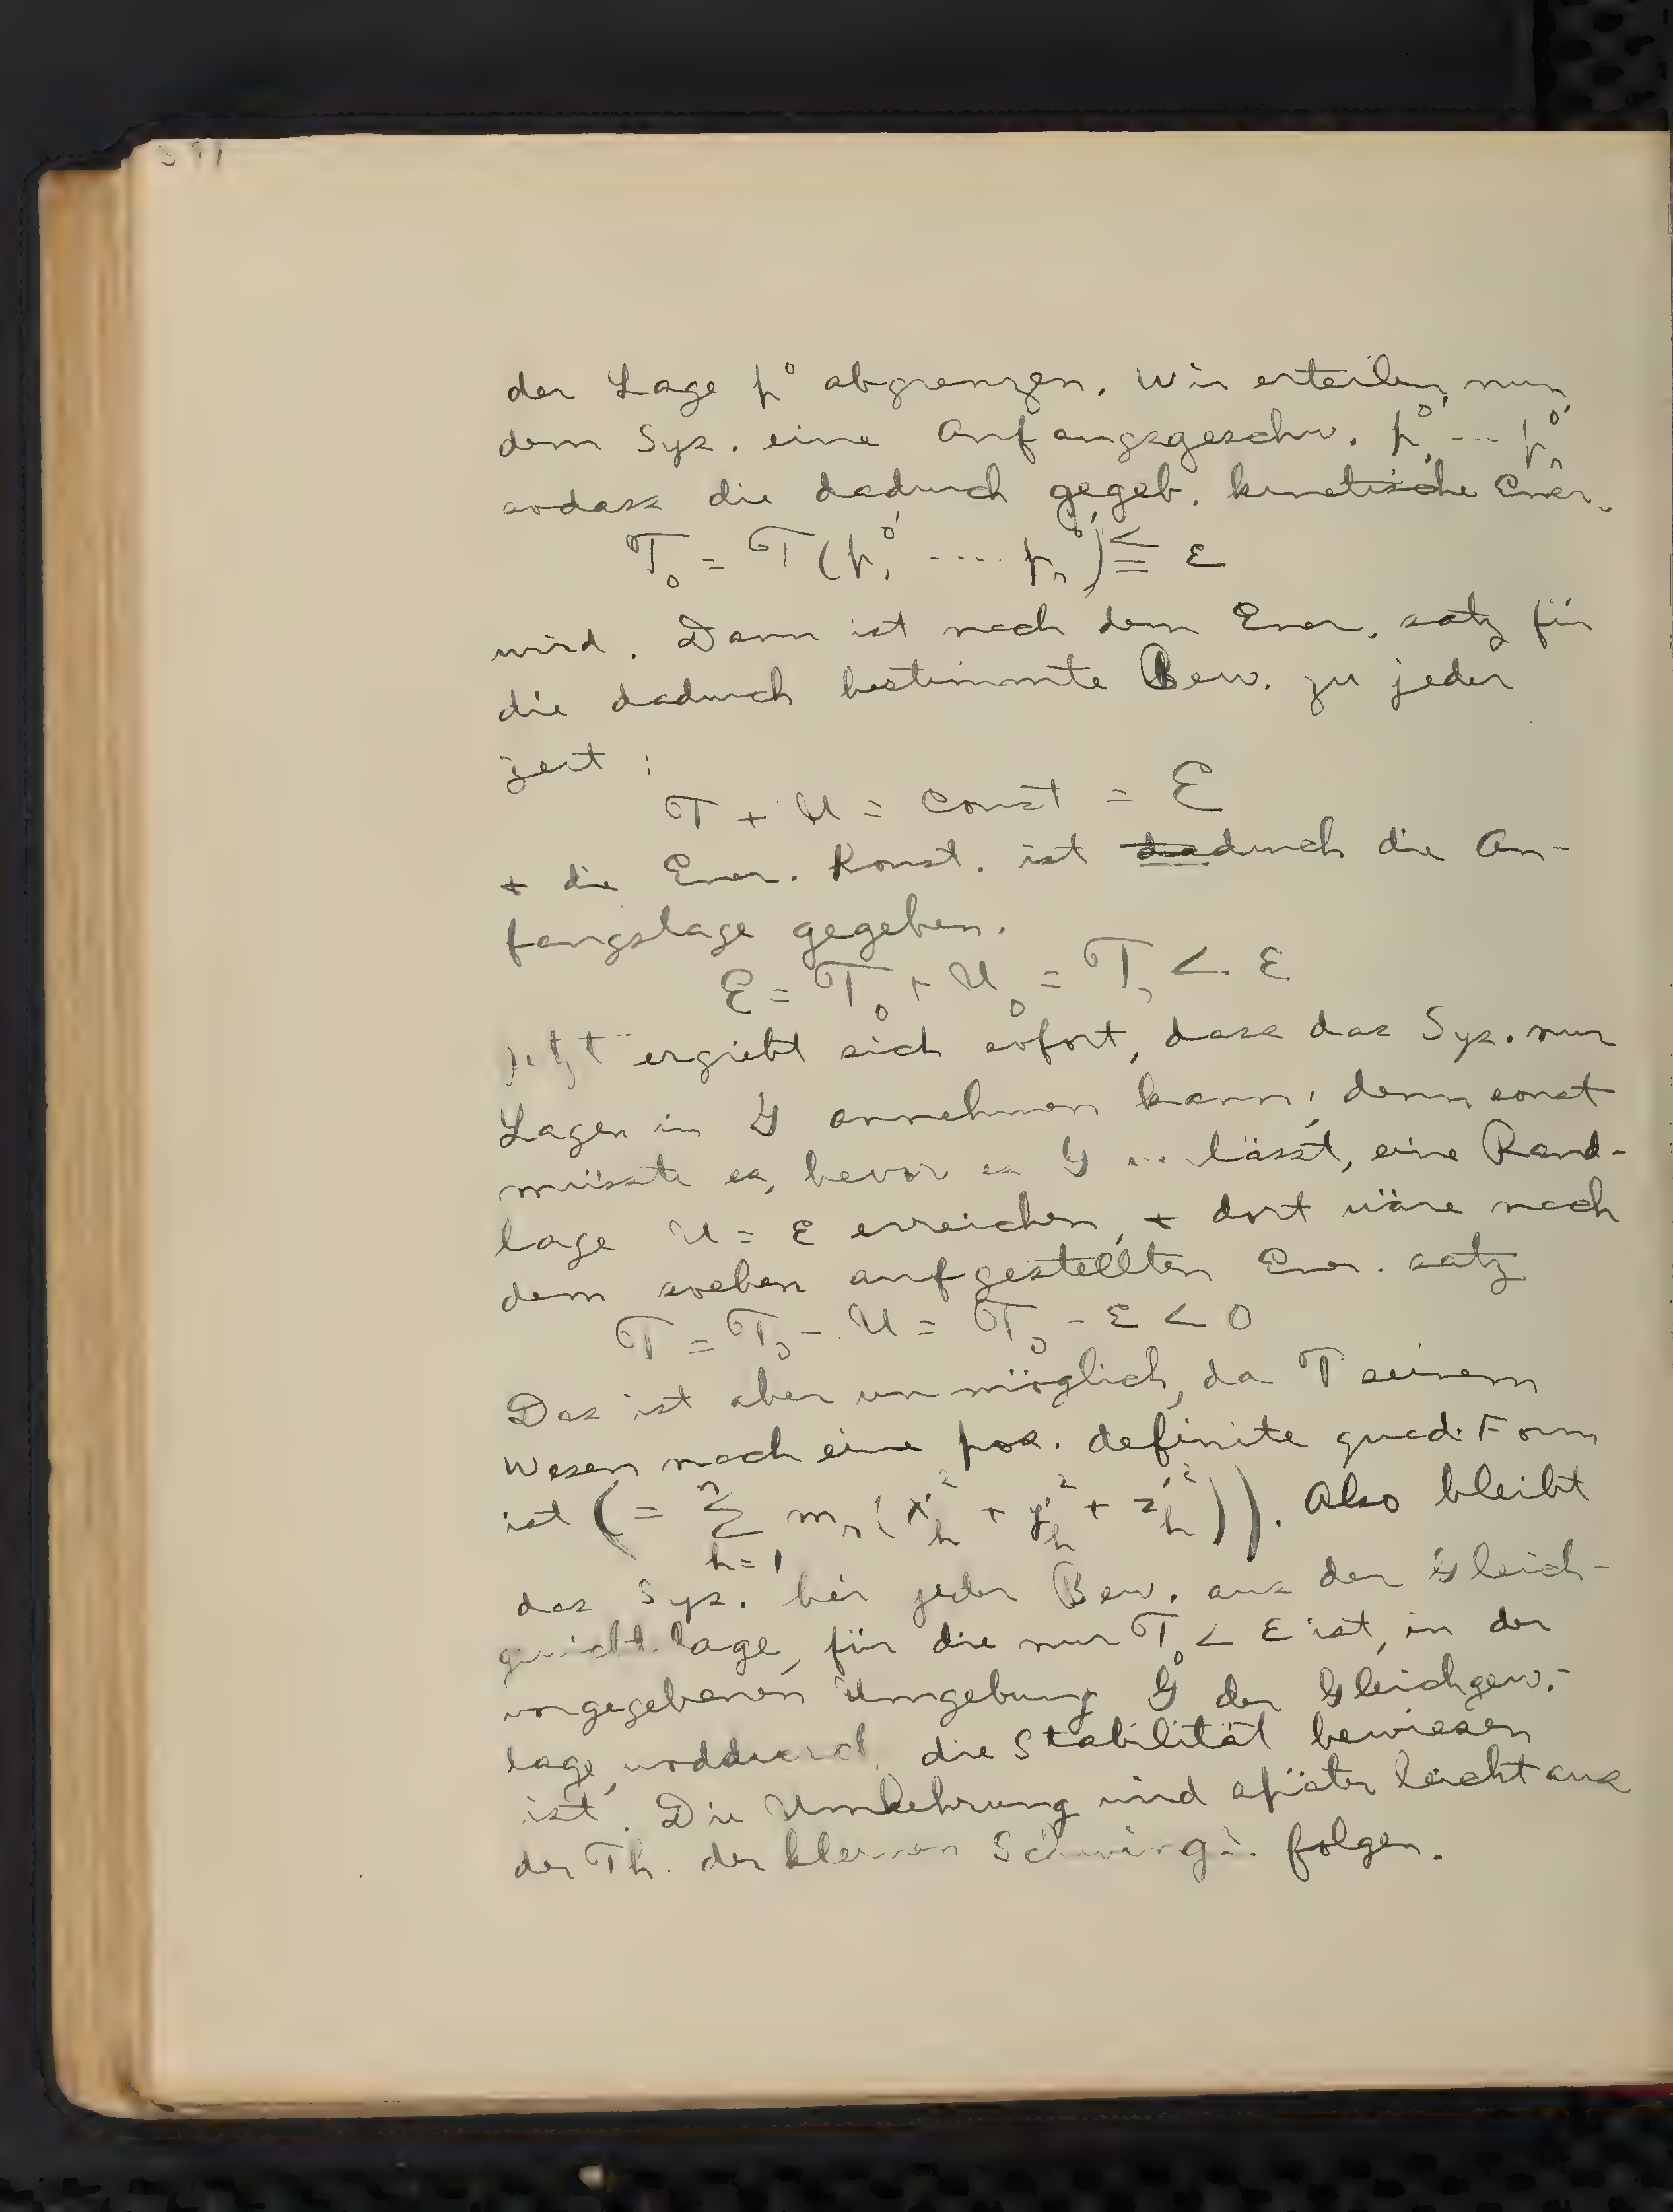 der Lage p⁰ abgrenzen. Wir erteilen nun
dem Sys. eine Anfangsgeschw. p₁⁰′ ... pₙ⁰′
sodass die dadurch gegeb. kinetische Ener.
T₀ = T(p₁⁰′ .... pₙ⁰′) ≦ ε
wird. Dann ist nach dem Ener. satz für
die dadurch bestimmte Bew. zu jeder
zeit :
T + U = Const = E
+ die Ener. Konst. ist durch die An-
fangslage gegeben.
E = T₀ + U₀ = T₀ < ε
Jetzt ergiebt sich sofort, dass das Sys. nur
Lagen in G annehmen kann; denn sonst
müsste es, bevor es G lässt, eine Rand-
lage U = ε erreichen, + dort wäre nach
dem soeben aufgestellten Ener. satz
T = T₀ - U = T₀ - ε < 0
Das ist aber unmöglich, da T seinem
Wesen nach eine pos. definite quad. Form
ist (= Σ_{h=1}^{n} mₙ(x′ₕ² + y′ₕ² + z′ₕ²)). Also bleibt
das Sys. bei jeder Bew. aus der Gleich-
gewicht. lage, für die nur T₀ < ε ist, in der
vorgegebenen Umgebung G der Gleichgew.-
lage, die Stabilität bewiesen
ist. Die Umkehrung wird später leicht aus
der Th. der kleinen Schwing. folgen.